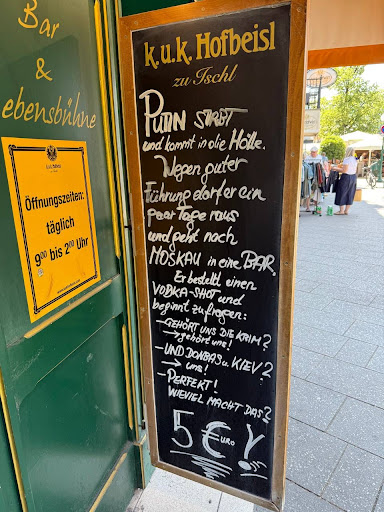 Bar
&
Lebensbühne
k.u.k. Hofbeisl
Öffnungszeiten:
täglich
9⁰⁰ bis 2⁰⁰ Uhr
k.u.k. Hofbeisl
zu Ischl
PUTIN STIRBT
und kommt in die Hölle.
Wegen guter
Führung darf er ein
paar Tage raus
und geht nach
MOSKAU in eine BAR.
Er bestellt einen
VODKA-SHOT und
beginnt zu fragen:
-GEHÖRT UNS DIE KRIM?
→ gehört uns!
-UND DONBAS u. KIEV?
→ uns!
-PERFEKT!
WIEVIEL MACHT DAS?
5 € EURO